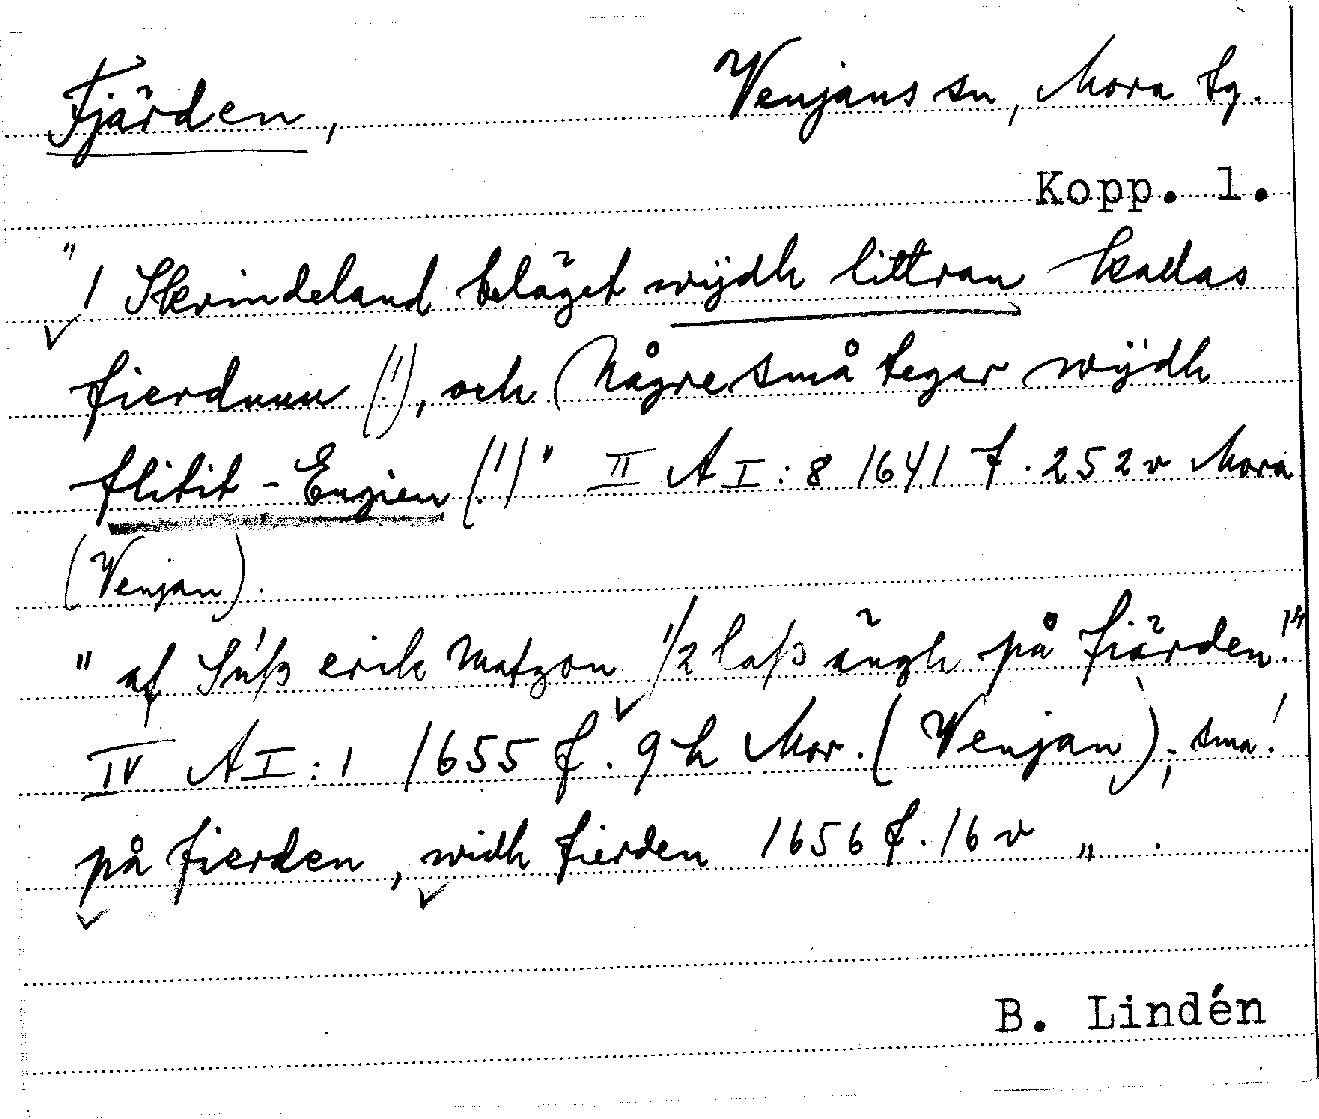 Fjärden, Venjans sn, Mora tg.
Kopp. l.
" 1 Skrindeland beläget wÿdh littran kadas
fierdnnn (!), och Någre små tegar wÿdh
flitit - Engien (!)" II A I : 8 1641 f. 252 v Mora
(Venjan).
" af Süß erik Matzon 1/2 laß ängh på fiärden."
IV A I : 1 1655 f. 9 h Mor. (Venjan); sma!
på fierden, widh fierden 1656 f. 16 v " .
B. Lindén